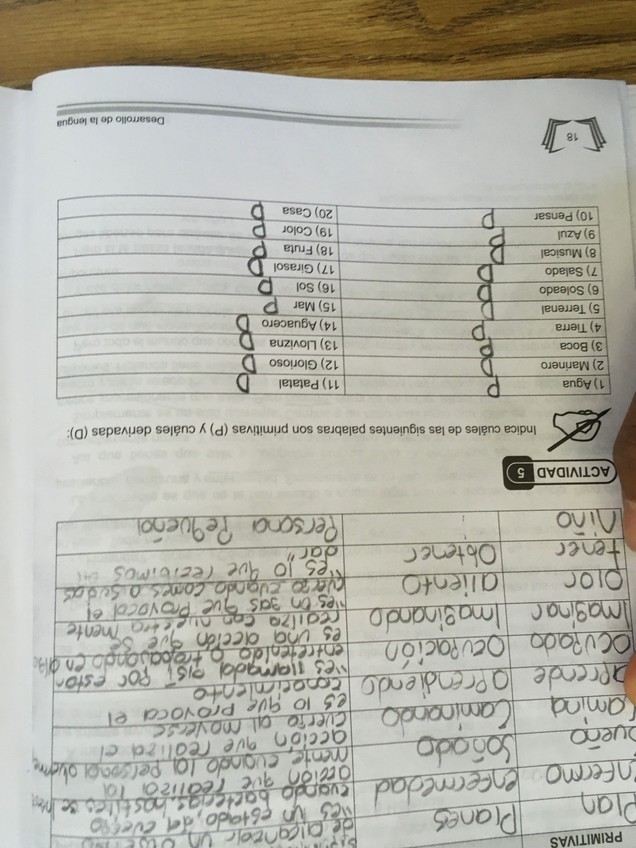 PRIMITIVAS
de alcanzar un
Plan Planes
"es un estado, del cuerpo
cuando bacterias hostiles se
Enfermo enfermedad
acción que realiza la
mente cuando la persona duerme
Sueño Soñado
acción que realiza el
cuerpo al moverse
Camina Caminando
es lo que provoca el
conocimiento
aprende aprendiendo
"es llamada así por estar
entretenido o trabajando en algo
Ocupado Ocupación
es una acción que se
realiza con nuestra mente
Imaginar Imaginando
"es un gas que Provoca el
cuerpo cuando comes o sudas
Olor aliento
"es lo que recibimos
dar"
tener Obtener
Niño Persona Pequeña
ACTIVIDAD 5
Indica cuáles de las siguientes palabras son primitivas (P) y cuáles derivadas (D):
1) Agua P 11) Patatal D
2) Marinero D 12) Glorioso D
3) Boca P 13) Llovizna D
4) Tierra P 14) Aguacero D
5) Terrenal D 15) Mar P
6) Soleado D 16) Sol P
7) Salado D 17) Girasol D
8) Musical D 18) Fruta P
9) Azul P 19) Color P
10) Pensar P 20) Casa P
18
Desarrollo de la lengua